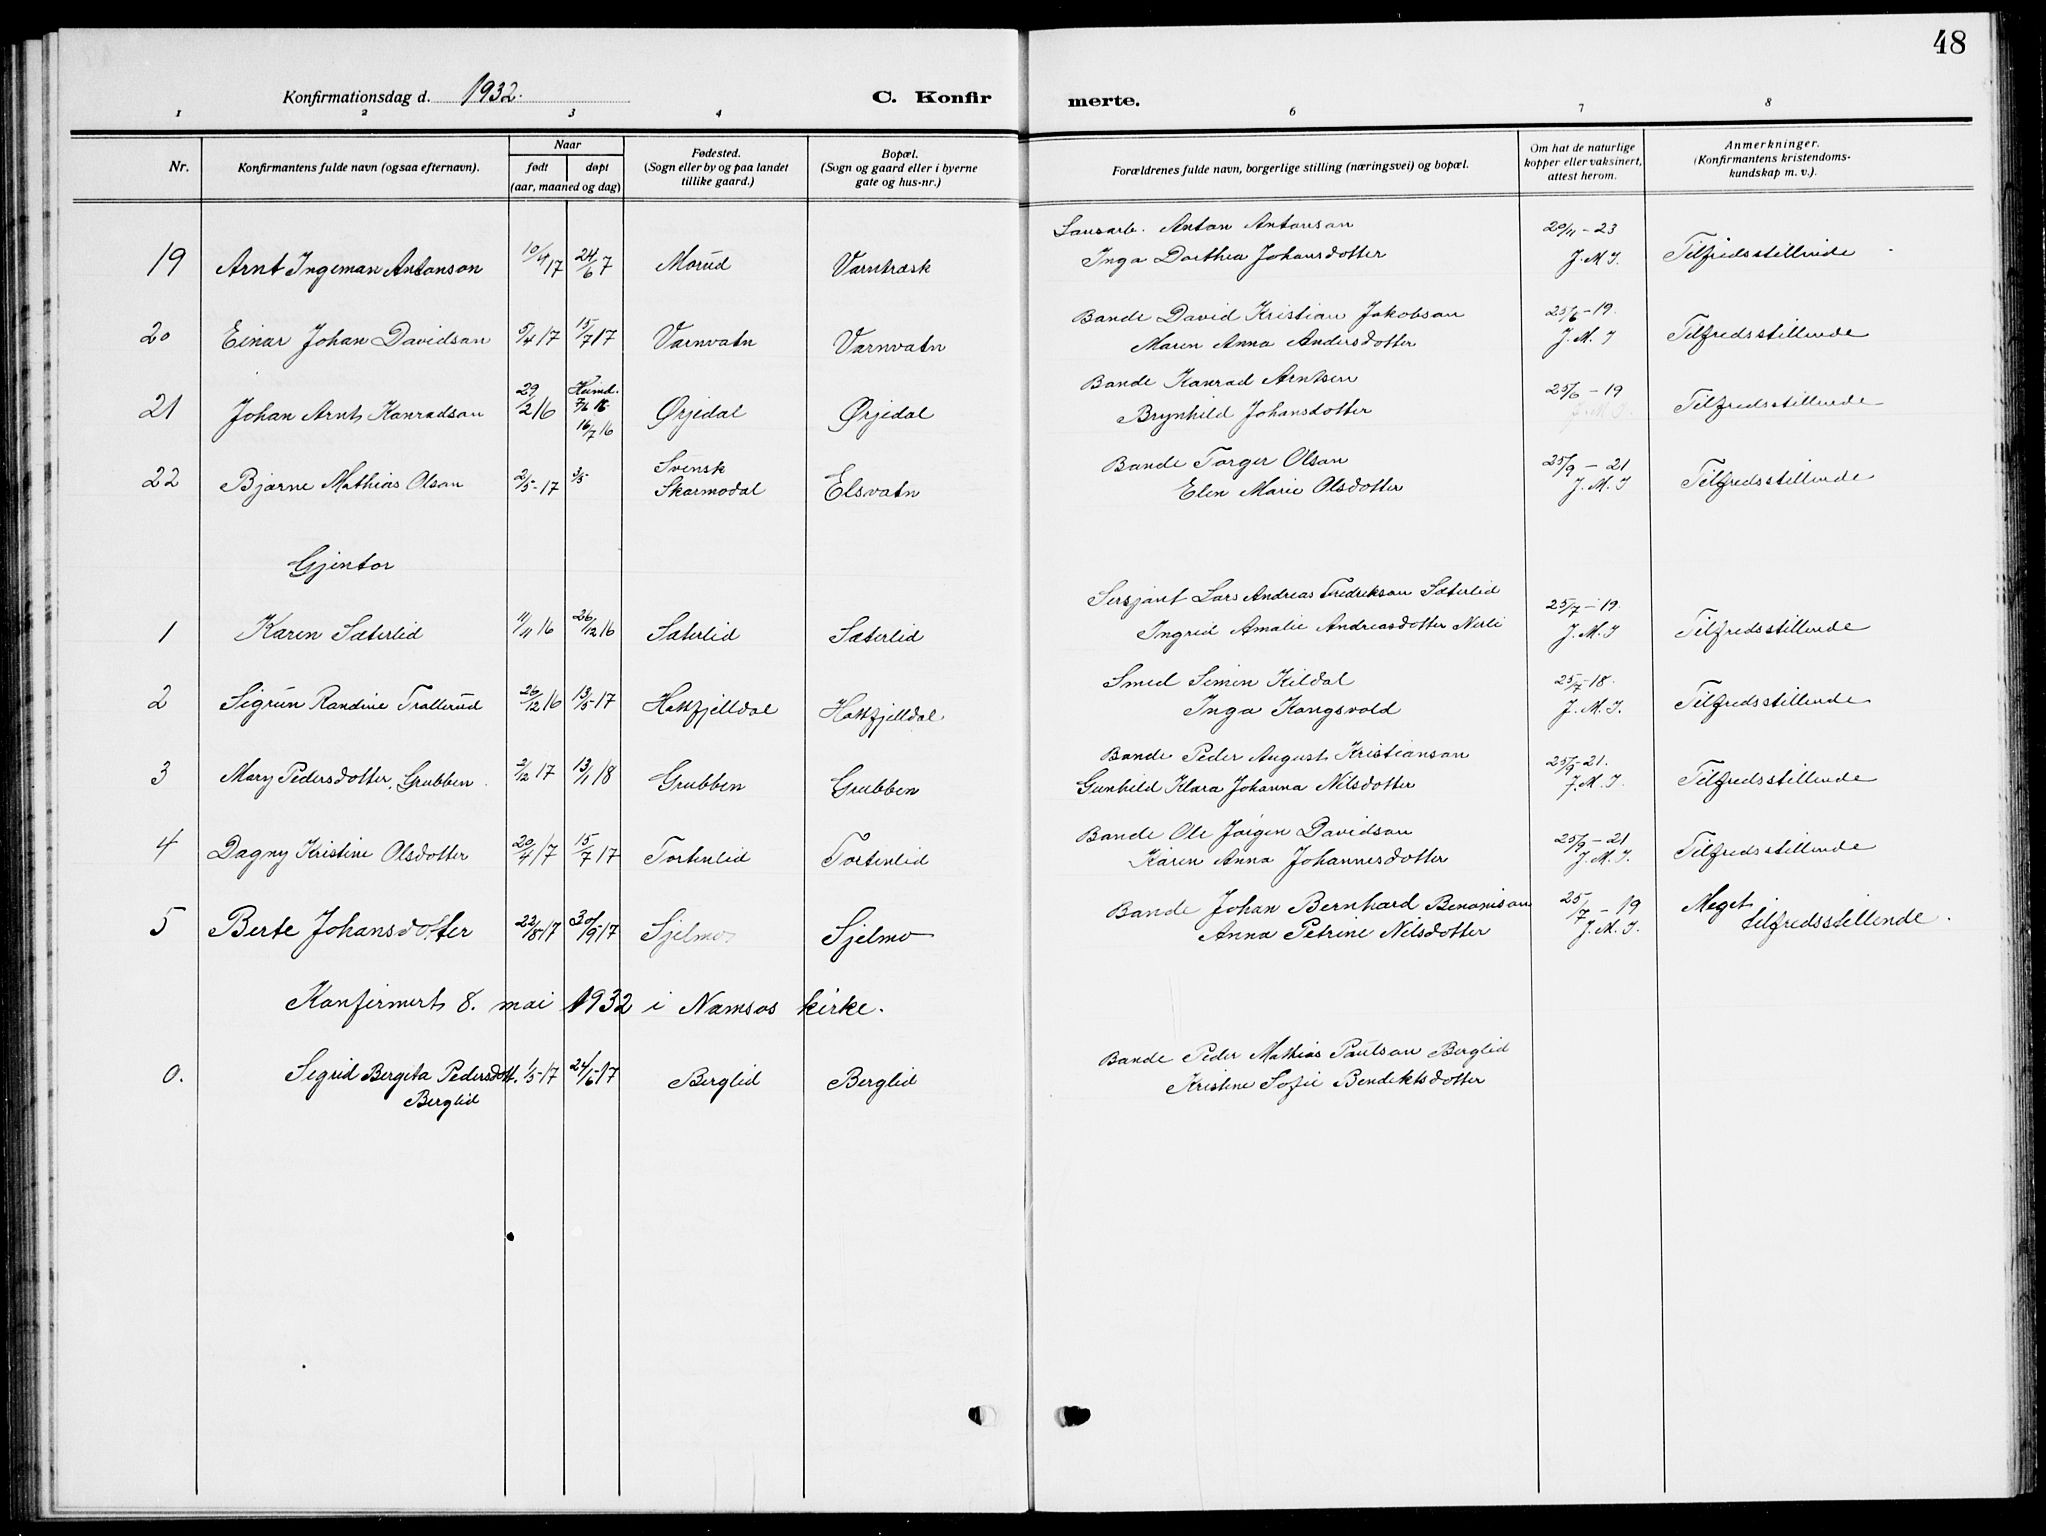 48
Konfirmationsdag d. 1932.
C. Konfir
merte.
1 2 3 4 6 7 8
Nr. Konfirmantens fulde navn (ogsaa efternavn). Naar født døpt (aar, maaned og dag) Fødested. (Sogn eller by og paa landet tillike gaard.) Bopæl. (Sogn og gaard eller i byerne gate og hus-nr.) Forældrenes fulde navn, borgerlige stilling (næringsvei) og bopæl. Om hat de naturlige kopper eller vaksinert, attest herom. Anmerkninger. (Konfirmantens kristendoms- kundskap m. v.).
Lausarb. Anton Antonson 20/11-23
19 Arnt Ingeman Antonson 10/4 17 24/6 7 Morud Varntræsk Inga Dorthea Johansdotter J.M.J. Tilfredsstillende
Bonde David Kristian Jakobson 25/6-19.
20 Einar Johan Davidson 5/4 17 15/7 17 Varnvatn Varnvatn Maren Anna Andersdotter J.M.J Tilfredsstillende
Bonde Konrad Arntsen 25/6-19
21 Johan Arnt Konradson 29/2 16 Heimd. 7/6 16 16/7 16 Ørjedal Ørjedal Brynhild Johansdotter J.M.J. Tilfredsstillende
Bonde Torger Olson 25/9-21
22 Bjarne Mathias Olson 2/5-17 3/5 Svensk Skarmodal Elsvatn Elen Marie Olsdotter J.M.J Tilfredsstillende
Gjentor
Sersjant Lars Andreas Fredrikson Sæterlid 25/7-19.
1 Karen Sæterlid 11/11 16 26/12 16 Sæterlid Sæterlid Ingrid Amalie Andreasdotter Nerli J.M.J Tilfredsstillende
Smed Simon Kildal 25/7-18.
2 Sigrun Randine Trallerud 26/12 16 13/5-17 Hattfjelldal Hattfjelldal Inga Kongsvold J.M.J. Tilfredsstillende
Bonde Peder August Kristianson 25/9-21.
3 Mary Pedersdotter, Grubben. 2/12 17 13/1 18 Grubben Grubben Gunhild Klara Johanna Nilsdotter J.M.J. Tilfredsstillende
Bonde Ole Jørgen Davidson 25/9-21
4 Dagny Kristine Olsdotter 20/4 17 15/7 17 Tortenlid Tortenlid Karen Anna Johannesdotter J.M.J. Tilfredsstillende
Bonde Johan Bernhard Benonison 25/7-19 Meget
5 Berte Johansdotter 22/8 17 30/9 17 Sjelmo Sjelmo Anna Petrine Nilsdotter J.M.J. tilfredsstillende.
Konfirmert 8. mai 1932 i Namsos kirke.
Bonde Peder Mathias Paulson Berglid
0. Sigrid Bergita Pedersdott. 1/5-17 24/6-17 Berglid Berglid Kristine Sofie Bendiktsdotter
Berglid